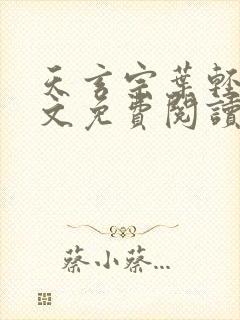 天玄宗葉輕
文免費閱讀
蔡小蔡...